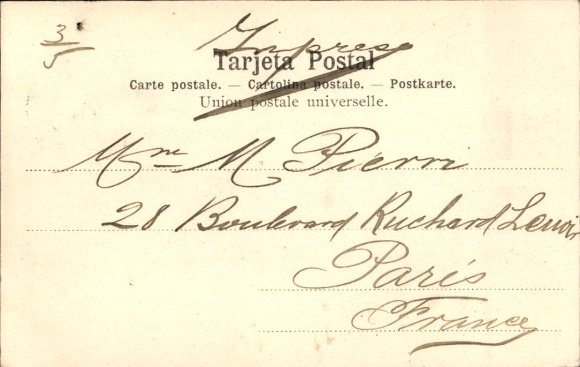 3/5
Impreso
Tarjeta Postal
Carte postale. — Cartolina postale. — Postkarte.
Union postale universelle.
Mme M Pierri
28 Boulevard Ruchard Lenoir
Paris
France